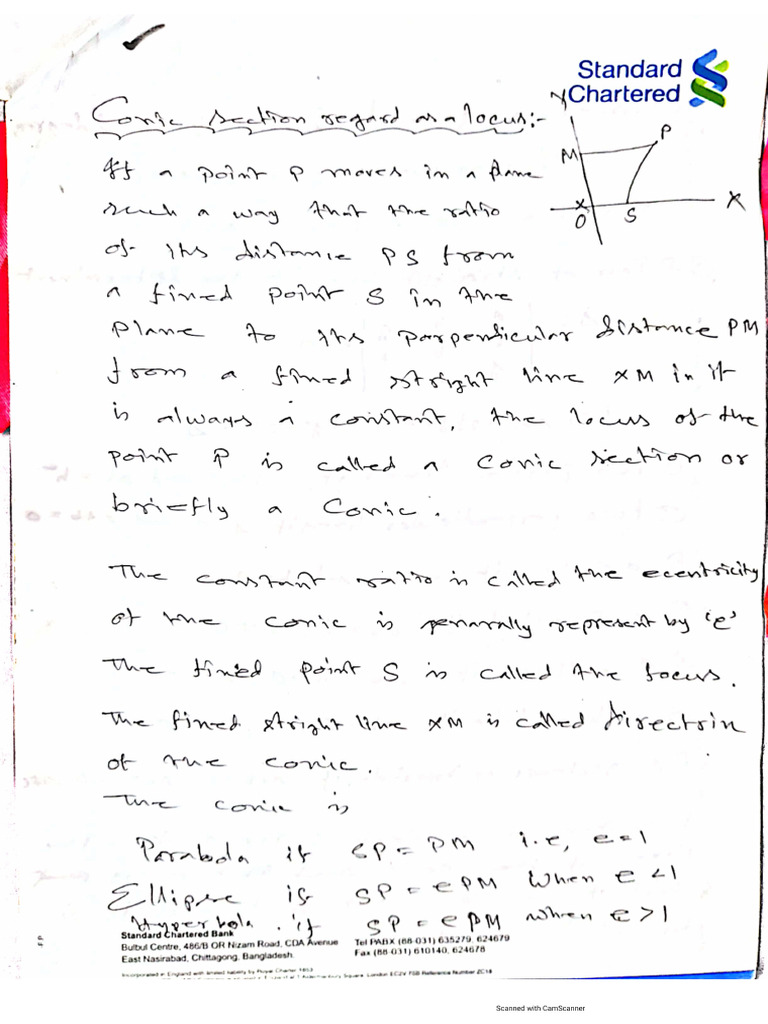 Standard
Chartered
Conic section regard as a locus:-
If a point P moves in a plane
such a way that the ratio
of its distance PS from
a fixed point S in the
plane to its parpendicular distance PM
from a fixed stright line XM in it
is always a constant, the locus of the
point P is called a conic section or
briefly a conic.
Y
M
P
X
O
S
X
The constant ratio is called the ecentricity
of the conic is genarally represent by 'e'
The fixed point S is called the focus.
The fixed stright line XM is called directrix
of the conic.
The conic is
Parabola if SP = PM i.e, e=1
Ellipse if SP = e PM when e <1
Hyperbola if SP = e PM when e >1
Standard Chartered Bank
Bulbul Centre, 486/B OR Nizam Road, CDA Avenue
East Nasirabad, Chittagong, Bangladesh
Tel PABX (88-031) 635279, 624679
Fax (88-031) 610140, 624678
Incorporated in England with limited liability by Royal Charter 1853
Square, London EC2V Reference Number ZC18
Scanned with CamScanner